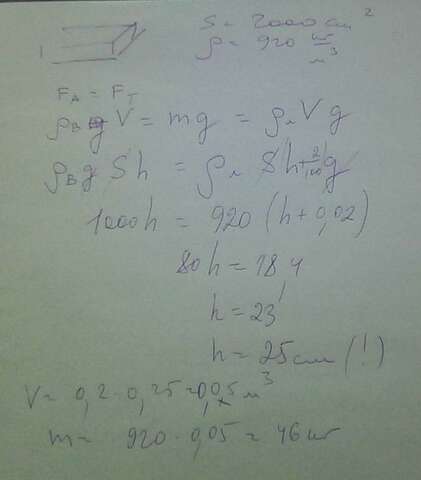 S = 2000 см²
ρ = 920 кг/м³
F_A = F_T
ρ_B g V = mg = ρ_л V g
ρ_B g S h = ρ_л S (h + 2/100) g
1000h = 920 (h + 0,02)
80h = 18,4
h = 23
h = 25 см (!)
V = 0,2 · 0,25 = 0,05 м³
m = 920 · 0,05 = 46 кг